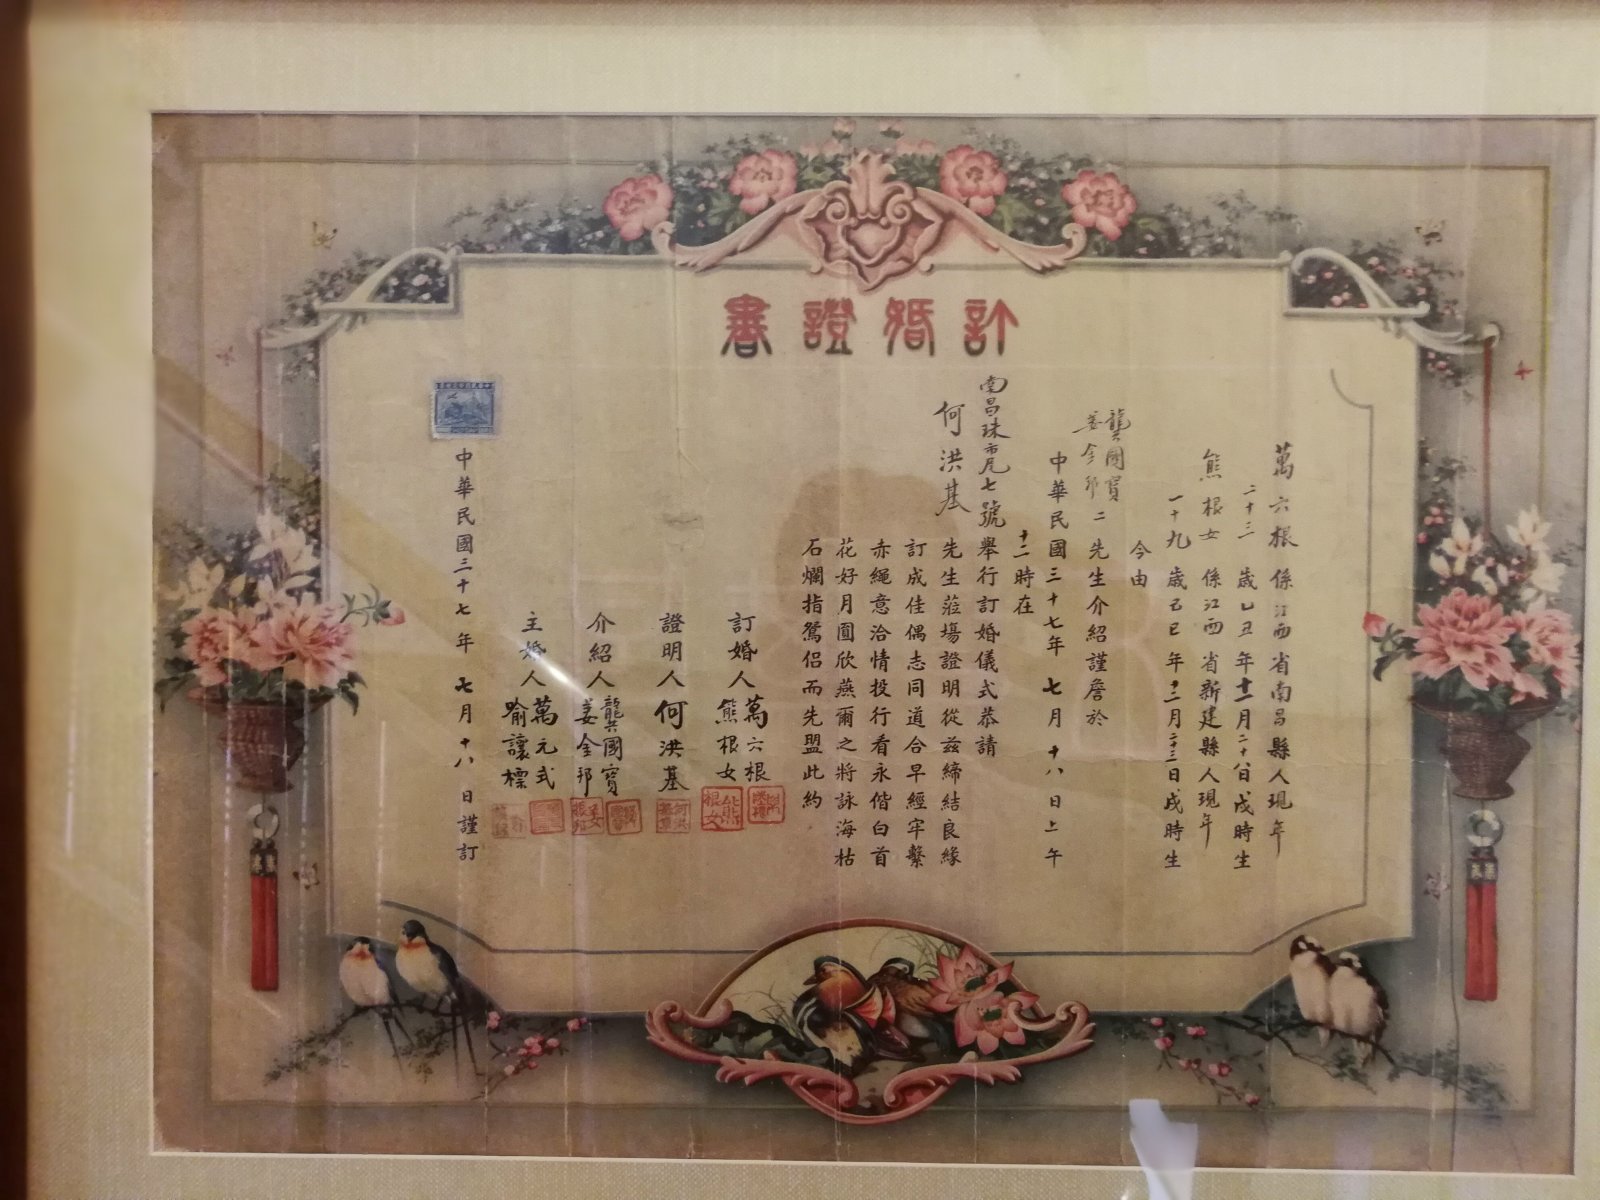 訂婚證書
萬六根係江西省南昌縣人現年
二十三歲乙丑年十二月二十八日戌時生
熊根女係江西省新建縣人現年
一十九歲己巳年十二月二十三日戌時生
今由
龔國寶
姜全邦
二先生介紹謹詹於
中華民國三十七年七月十八日上午
十二時在
南昌珠市尾七號舉行訂婚儀式恭請
何洪基先生蒞場證明從茲締結良緣
訂成佳偶志同道合早經牢繫
赤繩意洽情投行看永偕白首
花好月圓欣燕爾之將詠海枯
石爛指鴛侶而先盟此約
訂婚人
萬六根
熊根女
證明人何洪基
介紹人
龔國寶
姜全邦
主婚人
萬元式
喻讓標
中華民國三十七年七月十八日謹訂
熊根女